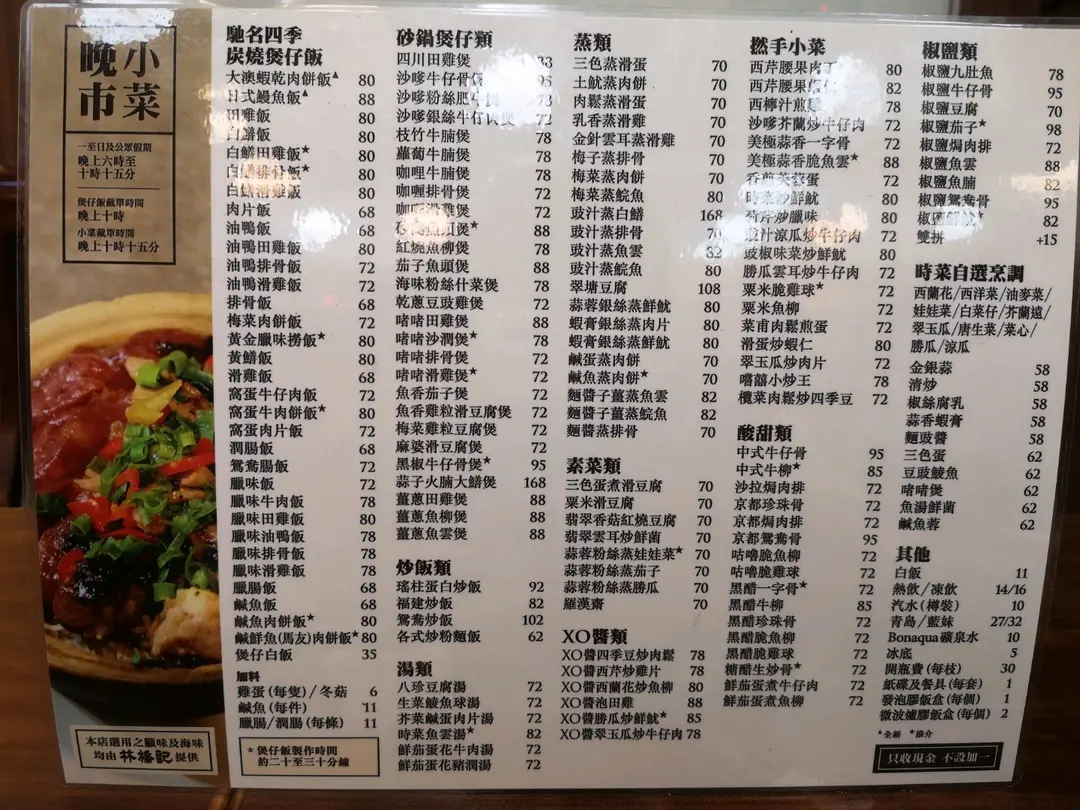 晚市
小菜
一至日及公眾假期
晚上六時至
十時十五分
煲仔飯截單時間
晚上十時
小菜截單時間
晚上十時十五分
本店選用之臘味及海味
均由 林橋記 提供
馳名四季
炭燒煲仔飯
大澳蝦乾肉餅飯▲ 80
日式鰻魚飯▲ 88
田雞飯 80
白鱔飯 80
白鱔田雞飯★ 80
白鱔排骨飯★ 80
白鱔滑雞飯 80
肉片飯 68
油鴨飯 68
油鴨田雞飯 80
油鴨排骨飯 72
油鴨滑雞飯 72
排骨飯 68
梅菜肉餅飯 72
黃金臘味撈飯★ 80
黃鱔飯 80
滑雞飯 68
窩蛋牛仔肉飯 72
窩蛋牛肉餅飯★ 80
窩蛋肉片飯 72
潤腸飯 68
鴛鴦腸飯 72
臘味飯 72
臘味牛肉飯 78
臘味田雞飯 80
臘味油鴨飯 78
臘味排骨飯 78
臘味滑雞飯 78
臘腸飯 68
鹹魚飯 68
鹹魚肉餅飯★ 80
鹹鮮魚(馬友)肉餅飯★ 80
煲仔白飯 35
加料
雞蛋(每隻)/冬菇 6
鹹魚(每件) 11
臘腸/潤腸(每條) 11
★煲仔飯製作時間
約二十至三十分鐘
砂鍋煲仔類
四川田雞煲 88
沙嗲牛仔骨煲 95
沙嗲粉絲肥牛煲 78
沙嗲銀絲牛仔肉煲 72
枝竹牛腩煲 78
蘿蔔牛腩煲 78
咖哩牛腩煲 78
咖喱排骨煲 72
滑雞煲 72
魚頭煲★ 88
紅燒魚柳煲 78
茄子魚頭煲 88
海味粉絲什菜煲 78
乾蔥豆豉雞煲 72
啫啫田雞煲 88
啫啫沙潤煲★ 78
啫啫排骨煲 72
啫啫滑雞煲★ 72
魚香茄子煲 72
魚香雞粒滑豆腐煲 72
梅菜雞粒豆腐煲 72
麻婆滑豆腐煲 72
黑椒牛仔骨煲★ 95
蒜子火腩大鱔煲 168
薑蔥田雞煲 88
薑蔥魚柳煲 88
薑蔥魚雲煲 88
炒飯類
瑤柱蛋白炒飯 92
福建炒飯 82
鴛鴦炒飯 102
各式炒粉麵飯 62
湯類
八珍豆腐湯 72
生菜鯪魚球湯 72
芥菜鹹蛋肉片湯 72
時菜魚雲湯★ 82
鮮茄蛋花牛肉湯 72
鮮茄蛋花豬潤湯 72
蒸類
三色蒸滑蛋 70
土魷蒸肉餅 70
肉鬆蒸滑蛋 70
乳香蒸滑雞 70
金針雲耳蒸滑雞 70
梅子蒸排骨 70
梅菜蒸肉餅 70
梅菜蒸鯇魚 80
豉汁蒸白鱔 168
豉汁蒸排骨 70
豉汁蒸魚雲 82
豉汁蒸鯇魚 80
翠塘豆腐 108
蒜蓉銀絲蒸鮮魷 80
蝦膏銀絲蒸肉片 80
蝦膏銀絲蒸鮮魷 80
鹹蛋蒸肉餅 70
鹹魚蒸肉餅★ 70
麵醬子薑蒸魚雲 82
麵醬子薑蒸鯇魚 82
麵醬蒸排骨 70
素菜類
三色蛋煮滑豆腐 70
粟米滑豆腐 70
翡翠香菇紅燒豆腐 70
翡翠雲耳炒鮮菌 70
蒜蓉粉絲蒸娃娃菜★ 70
蒜蓉粉絲蒸茄子 70
蒜蓉粉絲蒸勝瓜 70
羅漢齋 70
XO醬類
XO醬四季豆炒肉鬆 78
XO醬西芹炒雞片 78
XO醬西蘭花炒魚柳 80
XO醬泡田雞 88
XO醬勝瓜炒鮮魷★ 85
XO醬翠玉瓜炒牛仔肉 78
撚手小菜
西芹腰果肉丁 80
西芹腰果蝦仁 82
西檸汁煎 78
沙嗲芥蘭炒牛仔肉 72
美極蒜香一字骨 72
美極蒜香脆魚雲★ 88
香煎芙蓉蛋 72
時菜炒鮮魷 80
荷芹炒臘味 80
豉汁涼瓜炒牛仔肉 72
豉椒味菜炒鮮魷 80
勝瓜雲耳炒牛仔肉 72
粟米脆雞球★ 72
粟米魚柳 72
菜甫肉鬆煎蛋 72
滑蛋炒蝦仁 80
翠玉瓜炒肉片 72
噹囍小炒王 78
欖菜肉鬆炒四季豆 72
酸甜類
中式牛仔骨 95
中式牛柳★ 85
沙拉焗肉排 72
京都珍珠骨 72
京都焗肉排 72
京都鴛鴦骨 95
咕嚕脆魚柳 72
咕嚕脆雞球 72
黑醋一字骨★ 72
黑醋牛柳 85
黑醋珍珠骨 72
黑醋脆魚柳 72
黑醋脆雞球 72
糖醋生炒骨★ 72
鮮茄蛋煮牛仔肉 72
鮮茄蛋煮魚柳 72
椒鹽類
椒鹽九肚魚 78
椒鹽牛仔骨 95
椒鹽豆腐 70
椒鹽茄子★ 98
椒鹽焗肉排 72
椒鹽魚雲 88
椒鹽魚腩 82
椒鹽鴛鴦骨 95
椒鹽鮮魷★ 82
雙拼 +15
時菜自選烹調
西蘭花/西洋菜/油麥菜/
娃娃菜/白菜仔/芥蘭遠/
翠玉瓜/唐生菜/菜心/
勝瓜/涼瓜
金銀蒜 58
清炒 58
椒絲腐乳 58
蒜香蝦膏 58
麵豉醬 58
三色蛋 62
豆豉鯪魚 62
啫啫煲 62
魚湯鮮菌 62
鹹魚蓉 62
其他
白飯 11
熱飲/凍飲 14/16
汽水(樽裝) 10
青島/藍妹 27/32
Bonaqua礦泉水 10
冰底 5
開瓶費(每枝) 30
紙碟及餐具(每套) 1
發泡膠飯盒(每個) 1
微波爐膠飯盒(每個) 2
▲全新 ★推介
只收現金 不設加一